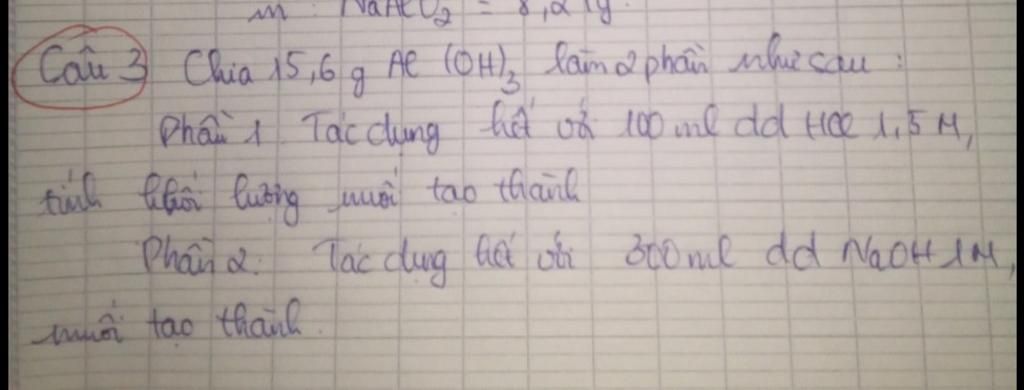 m : NaAlO2 = 8,2 (g
Câu 3 Chia 15,6 g Al (OH)3 làm 2 phần như sau :
Phần 1 Tác dụng hết với 100 ml dd HCl 1,5 M,
tính khối lượng muối tạo thành
Phần 2. Tác dụng hết với 300 ml dd NaOH 1M,
muối tạo thành.